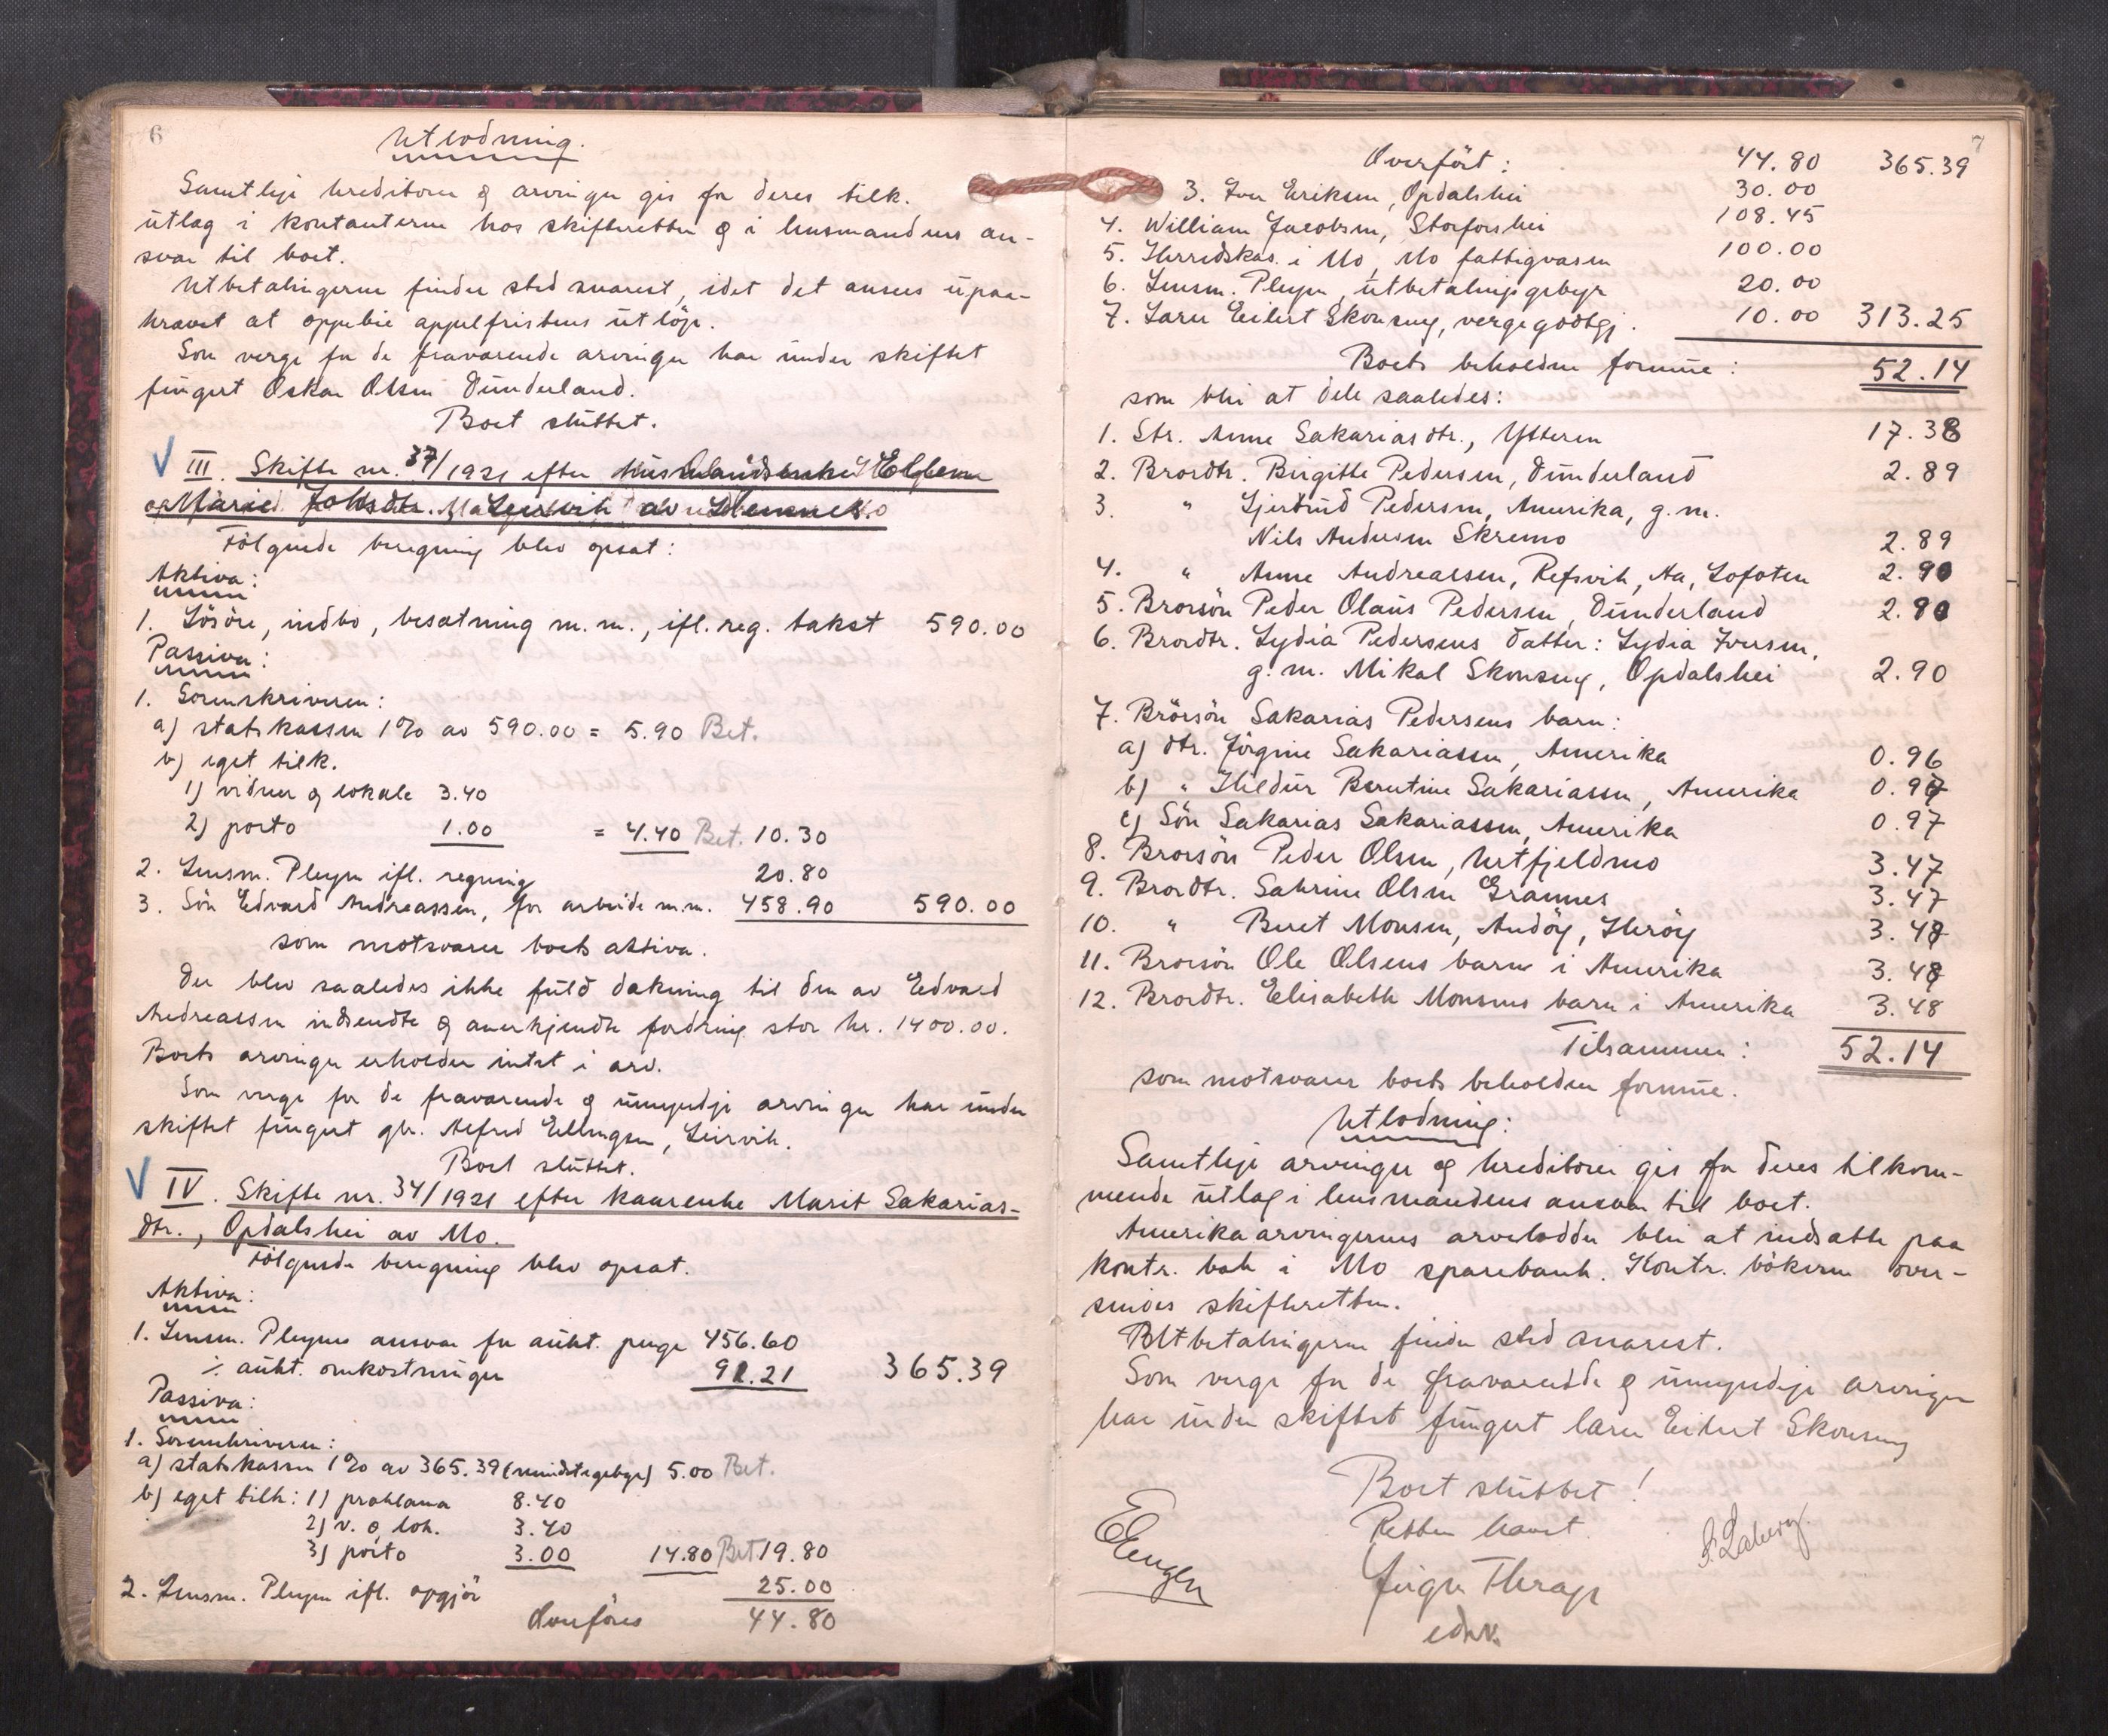 6
Utlodning.
Samtlige kreditorer og arvinger gis for deres tilk.
utlæg i kontanterne hos skifteretten og i lensmandens an-
svar til boet.
Utbetalingerne finder sted snarest, idet det ansees upaa-
krævet at oppebie appelfristens utløp.
Som verge for de fraværende arvinger har under skiftet
fungert Oskar Olsen Dunderland.
Boet sluttet.
III. Skifte nr. 37/1921 efter
Marie Johsdtr. Leirvik av Hemnes.
Følgende beregning blev opsat:
Aktiva:
1. Løsøre, indbo, besætning m.m., ifl. reg. takst 590.00
Passiva:
1. Sorenskriveren:
a) statskassen 1% av 590.00 = 5.90 Bet.
b) eget tilk.
1) vidner og lokale 3.40
2) porto 1.00 = 4.40 Bet. 10.30
2. Lensm. Pleym ifl. regning 20.80
3. Søn Edvard Andreassen, for arbeide m.m. 458.90 590.00
som motsvarer boets aktiva.
Der blev saaledes ikke fuld dækning til den av Edvard
Andreassen indsendte og anerkjendte fordring stor kr. 1400.00.
Boets arvinger erholder intet i arv.
Som verge for de fraværende og umyndige arvinger har under
skiftet fungert gbr. Alfred Ellingsen, Leirvik.
Boet sluttet.
IV. Skifte nr. 34/1921 efter kaarenke Marit Sakarias-
dtr., Opdalshei av Mo.
Følgende beregning blev opsat.
Aktiva:
1. Lensm. Pleyms ansvar for aukt. penge 456.60
÷ aukt. omkostninger 91.21 365.39
Passiva:
1. Sorenskriveren:
a) statskassen 1% av 365.39 (mindstegebyr) 5.00 Bet.
b) eget tilk: 1) proklama 8.40
2) v. og lok. 3.40
3) porto 3.00 14.80 Bet 19.80
2. Lensm. Pleym ifl. opgjør 25.00
Overføres 44.80
7
Overført: 44.80 365.39
3. Iver Eriksen, Opdalshei 30.00
4. William Jacobsen, Storforshei 108.45
5. Herredskas. i Mo, Mo fattigvæsen 100.00
6. Lensm. Pleym, utbetalingsgebyr 20.00
7. Lærer Eilert Skonseng, vergegodtgj. 10.00 313.25
Boets beholdne formue: 52.14
som blir at dele saaledes:
1. Str. Anne Sakariasdtr., Ytteren 17.38
2. Brordtr. Birgitte Pedersen, Dunderland 2.89
3. " Gjertrud Pedersen, Amerika, g.m.
Nils Andersen Skremo 2.89
4. " Anne Andreassen, Refsvik, Aa, Lofoten 2.90
5. Brorsøn Peder Olaus Pedersen, Dunderland 2.90
6. Brordtr. Lydia Pedersens datter: Lydia Iversen,
g.m. Mikal Skonseng, Opdalshei 2.90
7. Brorsøn Sakarias Pedersens barn:
a) dtr. Jørgine Sakariassen, Amerika 0.96
b) " Hildur Berntine Sakariassen, Amerika 0.97
c) Søn Sakarias Sakariassen, Amerika 0.97
8. Brorsøn Peder Olsen, Urtfjeldmo 3.47
9. Brordtr. Sabrine Olsen Grannes 3.47
10. " Beret Monsen, Andøy, Herøy 3.48
11. Brorsøn Ole Olsens barn i Amerika 3.48
12. Brordtr. Elisabeth Monsens barn i Amerika 3.48
Tilsammen: 52.14
som motsvarer boets beholdne formue.
Utlodning:
Samtlige arvinger og kreditorer gis for deres tilkom-
mende utlæg i lensmandens ansvar til boet.
Amerikaarvingernes arvelodder blir at indsætte paa
kontr. bok i Mo sparebank. Kontr. bøkerne over-
sendes skifteretten.
Utbetalingerne finder sted snarest.
Som verge for de fraværende og umyndige arvinger
har under skiftet fungert lærer Eilert Skonseng
Boet sluttet!
Retten hævet.